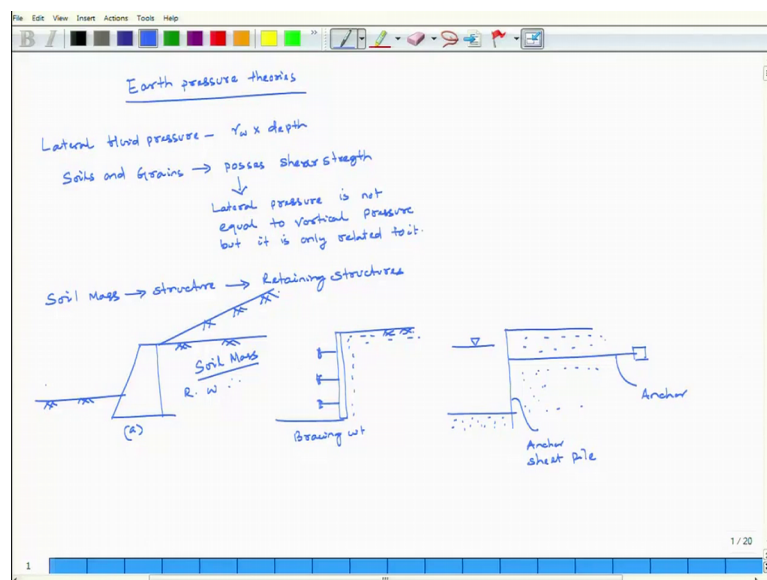 File Edit View Insert Actions Tools Help
B I
Earth pressure theories
Lateral fluid pressure - γw x depth
Soils and Grains → posses shear stregth
Lateral pressure is not
equal to vertical pressure
but it is only related to it.
Soil Mass → structure → Retaining structures
Soil Mass
R. W
(a)
Bracing
Anchor
Anchor
sheet pile
1 / 20
1